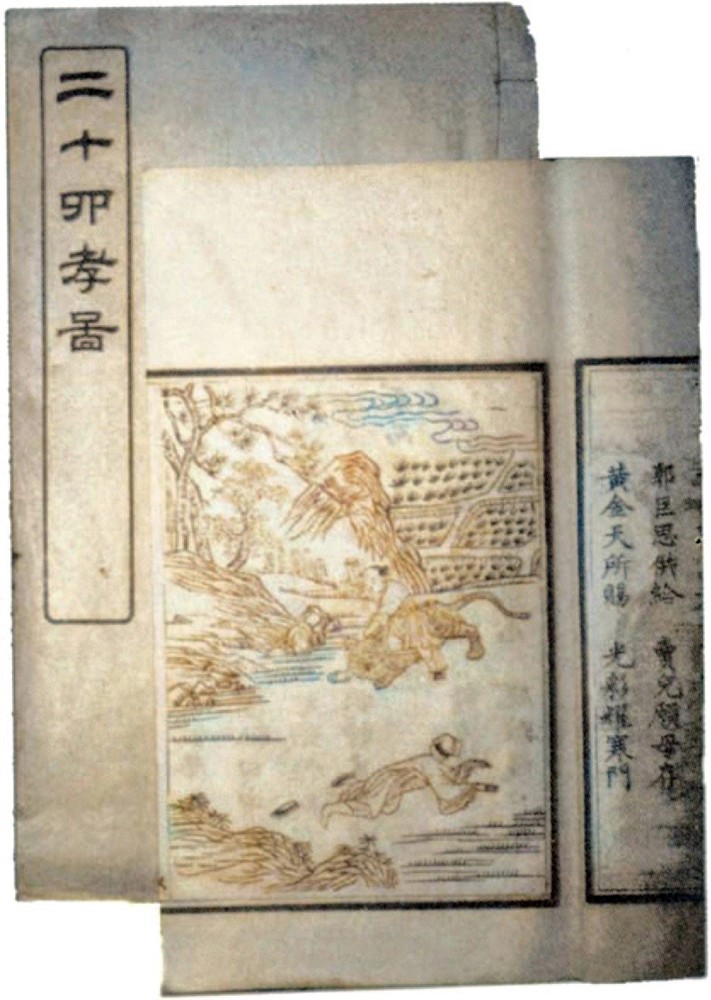 二十四孝啚
郭巨思供給 賣兒願母存
黃金天所賜 光彩耀寒門